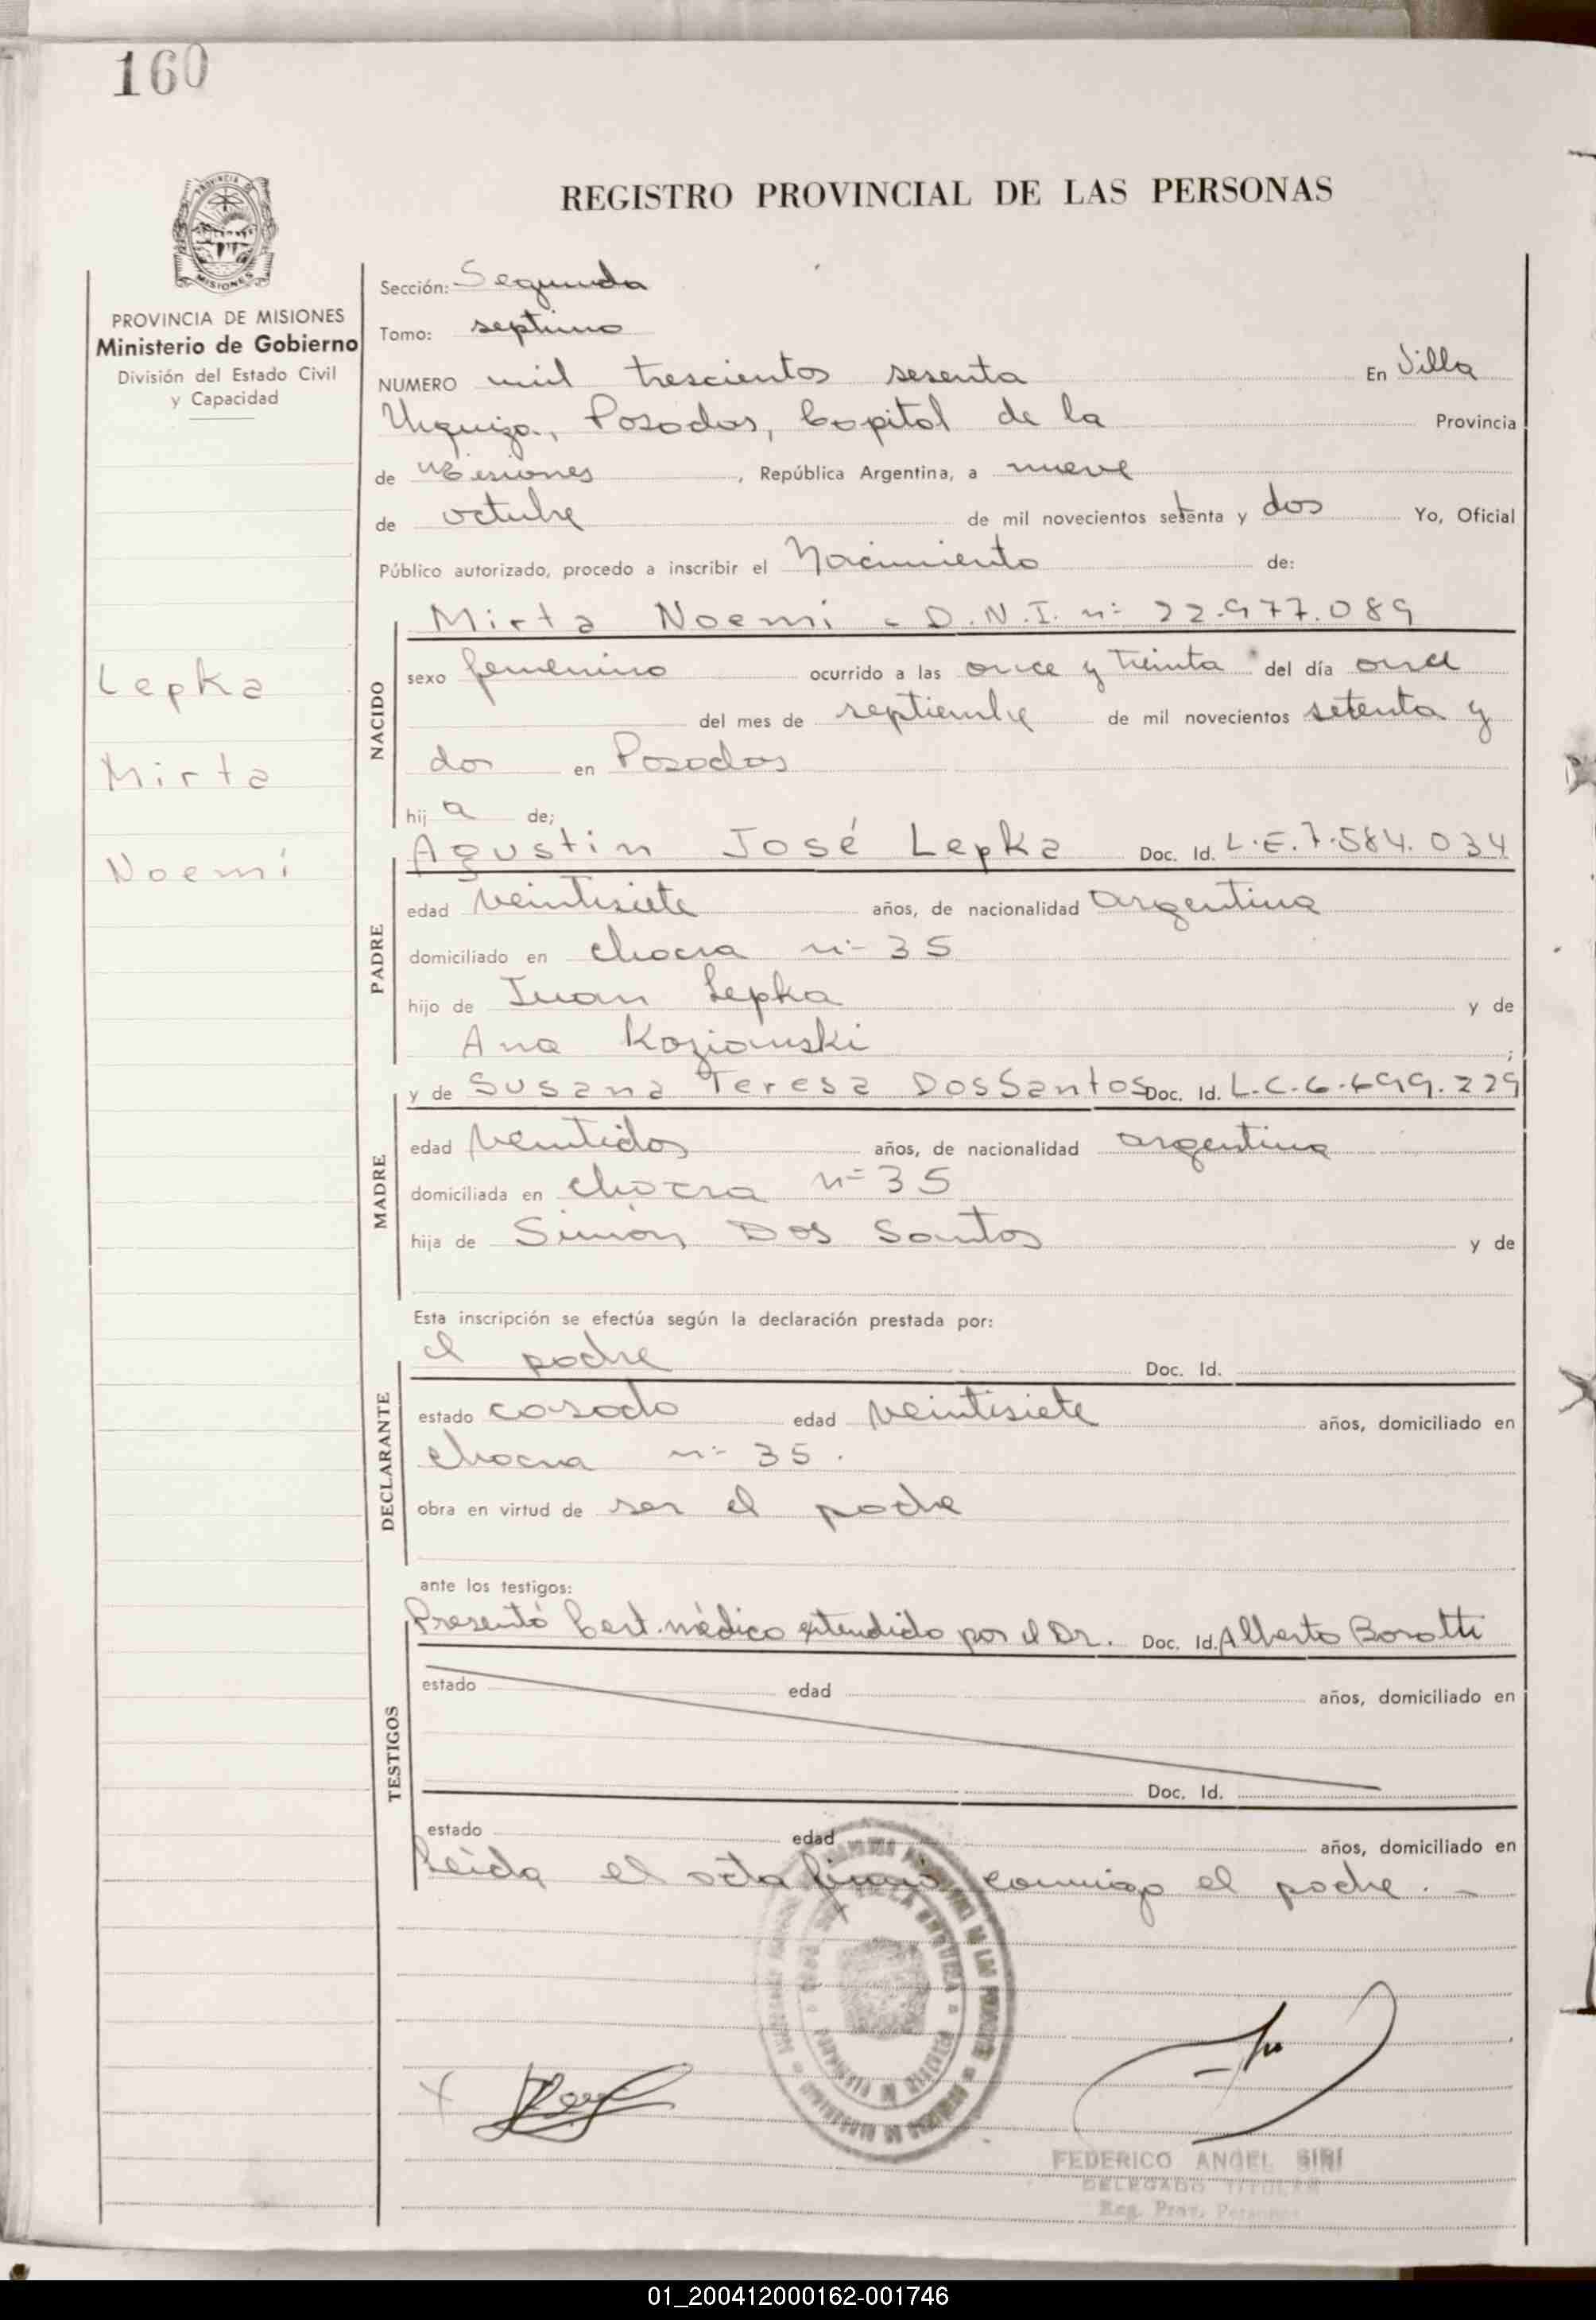 160
REGISTRO PROVINCIAL DE LAS PERSONAS
PROVINCIA DE MISIONES
Ministerio de Gobierno
División del Estado Civil
y Capacidad
Lepka
Mirta
Noemí
Sección: Segunda
Tomo: septimo
NUMERO mil trescientos sesenta En Villa
Urquiza, Posadas, Capital de la Provincia
de Misiones, República Argentina, a nueve
de octubre de mil novecientos setenta y dos Yo, Oficial
Público autorizado, procedo a inscribir el Nacimiento de:
Mirta Noemi - D.N.I. nº 22.977.089
NACIDO
sexo femenino ocurrido a las once y treinta del día once
del mes de septiembre de mil novecientos setenta y
dos en Posadas
hij a de;
Agustin José Lepka Doc. Id. L.E. 7.584.034
PADRE
edad veintisiete años, de nacionalidad argentina
domiciliado en chacra nº 35
hijo de Juan Lepka y de
Ana Koziouski ;
y de Susana Teresa DosSantos Doc. Id. L.C. 6.699.229
MADRE
edad veintidos años, de nacionalidad argentina
domiciliada en chacra nº 35
hija de Simón Dos Santos y de
Esta inscripción se efectúa según la declaración prestada por:
el padre Doc. Id.
DECLARANTE
estado casado edad veintisiete años, domiciliado en
chacra nº 35.
obra en virtud de ser el padre
ante los testigos:
Presentó Cert. médico extendido por el Dr. Doc. Id. Alberto Borotti
TESTIGOS
estado edad años, domiciliado en
Doc. Id.
estado edad años, domiciliado en
Leida el acta firma conmigo el padre. -
FEDERICO ANGEL SIRI
DELEGADO TITULAR
Reg. Prov. Personas
01_200412000162-001746